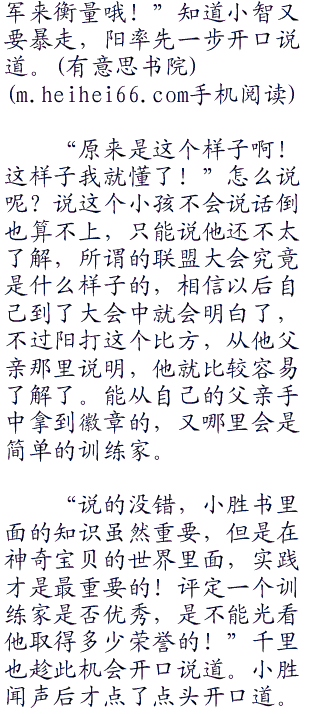 军来衡量哦！”知道小智又
要暴走，阳率先一步开口说
道。(有意思书院)
(m.heihei66.com手机阅读)
“原来是这个样子啊！
这样子我就懂了！”怎么说
呢？说这个小孩不会说话倒
也算不上，只能说他还不太
了解，所谓的联盟大会究竟
是什么样子的，相信以后自
己到了大会中就会明白了，
不过阳打这个比方，从他父
亲那里说明，他就比较容易
了解了。能从自己的父亲手
中拿到徽章的，又哪里会是
简单的训练家。
“说的没错，小胜书里
面的知识虽然重要，但是在
神奇宝贝的世界里面，实践
才是最重要的！评定一个训
练家是否优秀，是不能光看
他取得多少荣誉的！”千里
也趁此机会开口说道。小胜
闻声后才点了点头开口道。